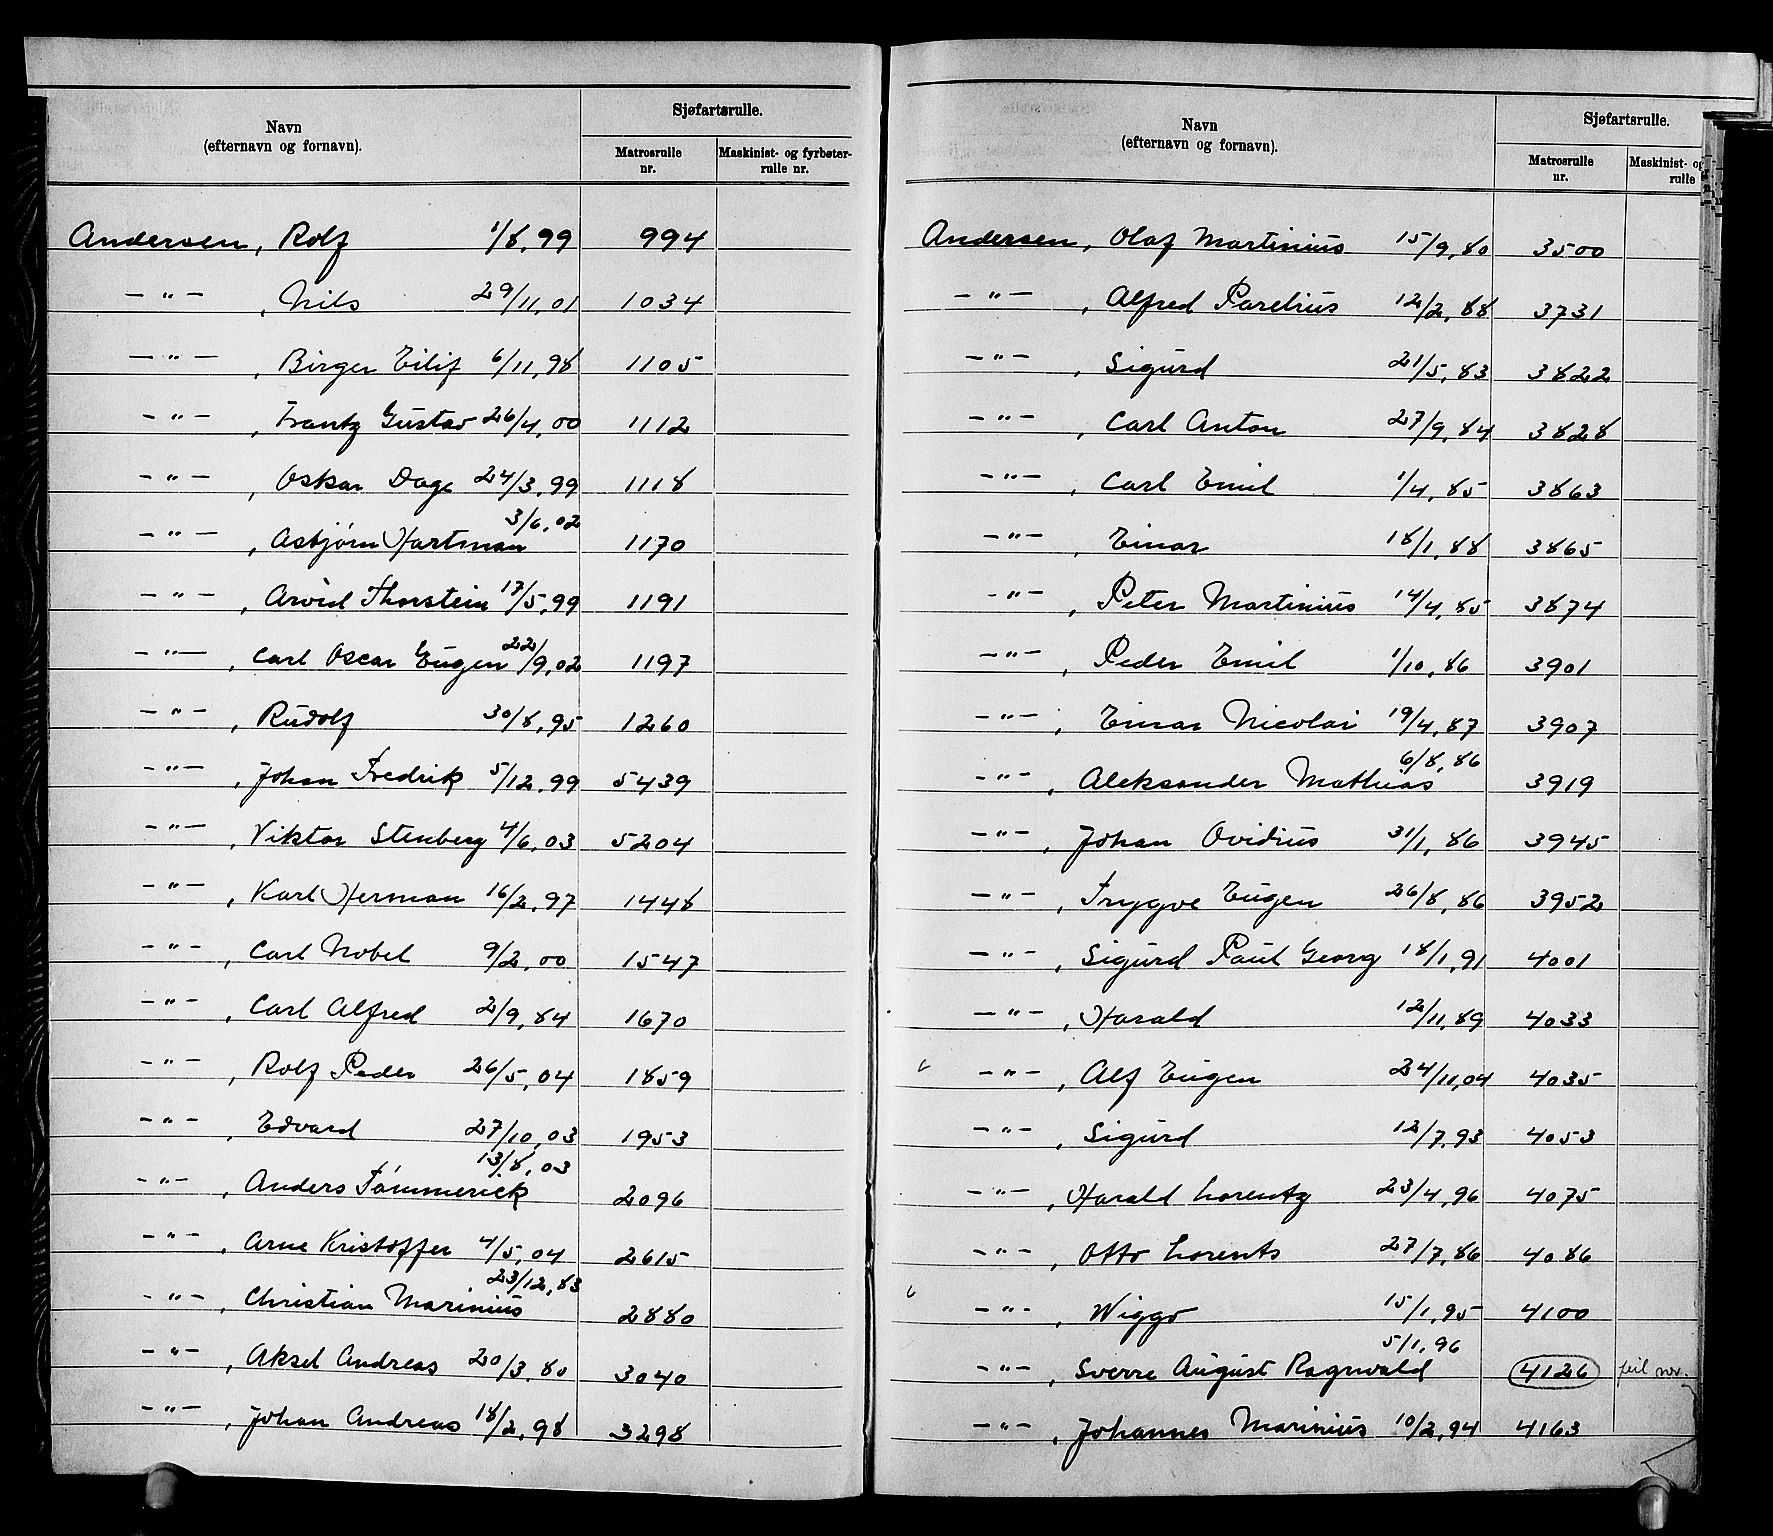 Navn
(efternavn og fornavn).
Sjøfartsrulle.
Matrosrulle nr.
Maskinist- og fyrbøter-rulle nr.
Andersen, Rolf 1/8, 99 994
—"—, Nils 29/11, 01 1034
—"—, Birger Eilif 6/11, 98 1105
—"—, Frantz Gustav 26/4, 00 1112
—"—, Oskar Dage 24/3, 99 1118
—"—, Asbjørn Hartman 3/6, 02 1170
—"—, Arvid Thorstein 17/5, 99 1191
—"—, Carl Oscar Eugen 22/9, 02 1197
—"—, Rudolf 30/8, 95 1260
—"—, Johan Fredrik 5/12, 99 5439
—"—, Viktor Stenberg 4/6, 03 5204
—"—, Karl Herman 16/2, 97 1448
—"—, Carl Nobel 9/2, 00 1547
—"—, Carl Alfred 2/9, 84 1670
—"—, Rolf Peder 26/5, 04 1859
—"—, Edvard 27/10, 03 1953
—"—, Anders Tømmervik 13/8, 03 2096
—"—, Arne Kristoffer 4/5, 04 2615
—"—, Christian Marinius 23/12, 83 2880
—"—, Aksel Andreas 20/3, 80 3040
—"—, Johan Andreas 18/2, 98 3298
Navn
(efternavn og fornavn).
Sjøfartsrulle.
Matrosrulle nr.
Maskinist- og
rulle
Andersen, Olaf Martinius 15/9, 80 3500
—"—, Alfred Parelius 12/2, 88 3731
—"—, Sigurd 21/5, 83 3822
—"—, Carl Anton 27/9, 84 3828
—"—, Carl Emil 1/4, 85 3863
—"—, Einar 18/1, 88 3865
—"—, Peter Martinius 14/4, 85 3874
—"—, Peder Emil 1/10, 86 3901
—"—, Einar Nicolai 19/4, 87 3907
—"—, Aleksander Mathias 6/8, 86 3919
—"—, Johan Ovidius 31/1, 86 3945
—"—, Trygve Eugen 26/8, 86 3952
—"—, Sigurd Paul Georg 18/1, 91 4001
—"—, Harald 12/11, 89 4033
—"—, Alf Eugen 24/11, 04 4035
—"—, Sigurd 12/7, 93 4053
—"—, Harald Lorentz 23/4, 96 4075
—"—, Otto Lorents 27/7, 86 4086
—"—, Wiggo 15/1, 95 4100
—"—, Sverre August Ragnvald 5/1, 96 4126 feil nr.
—"—, Johannes Marinius 10/2, 94 4163